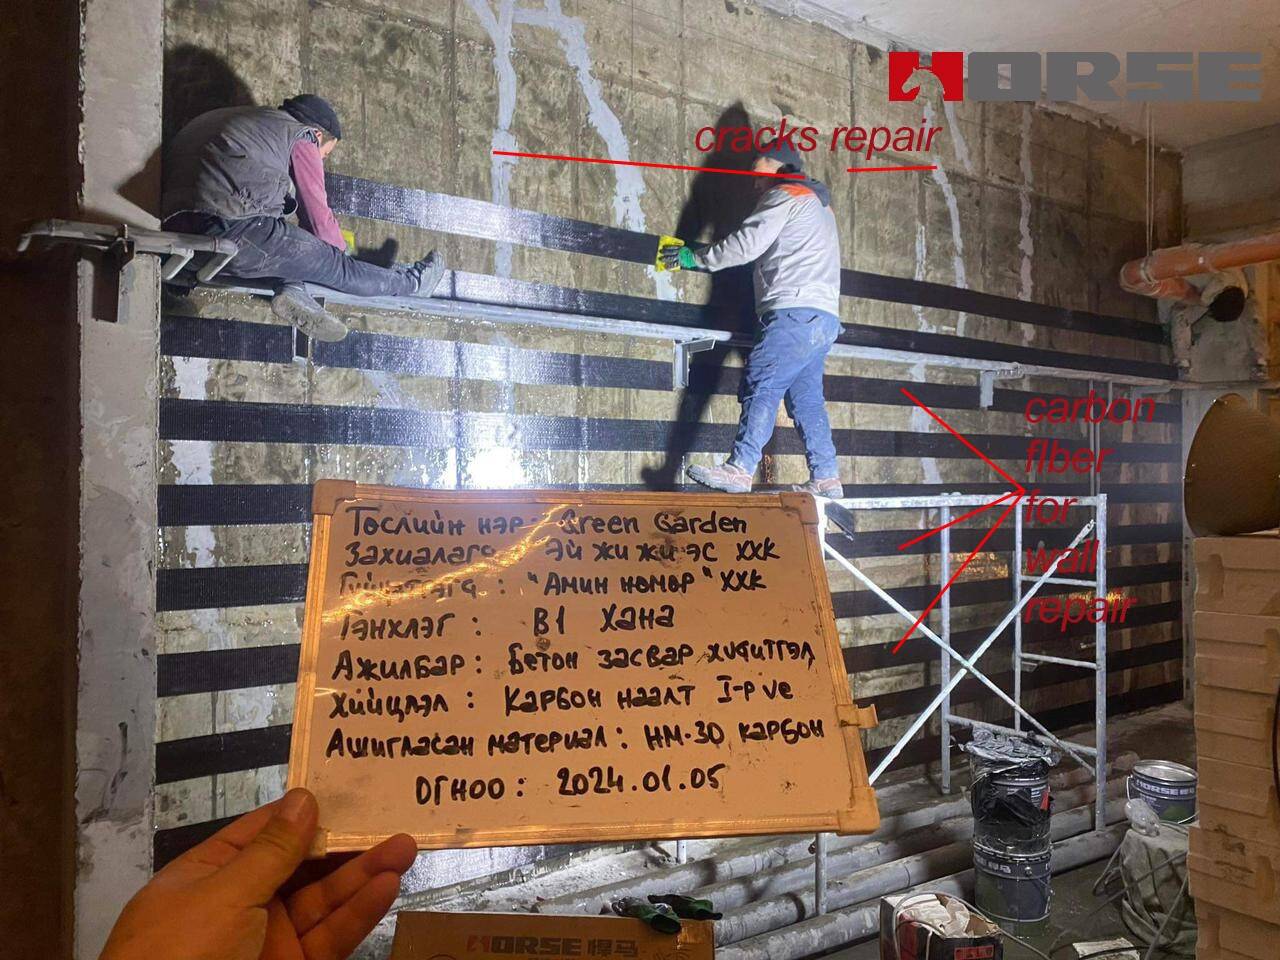 HORSE
cracks repair
carbon
fiber
for
wall
repair
Төслийн нэр: Green Garden
Захиалагч: Эй жи жи эс ХХК
"Амин нөмөр" ХХК
Тэнхлэг: B1 Хана
Ажилбар: Бетон засвар
Хийцлэл: Карбон наалт I-р үе
Ашигласан материал: HM-30 карбон
ОГНОО: 2024.01.05
HORSE
HORSE 悍马